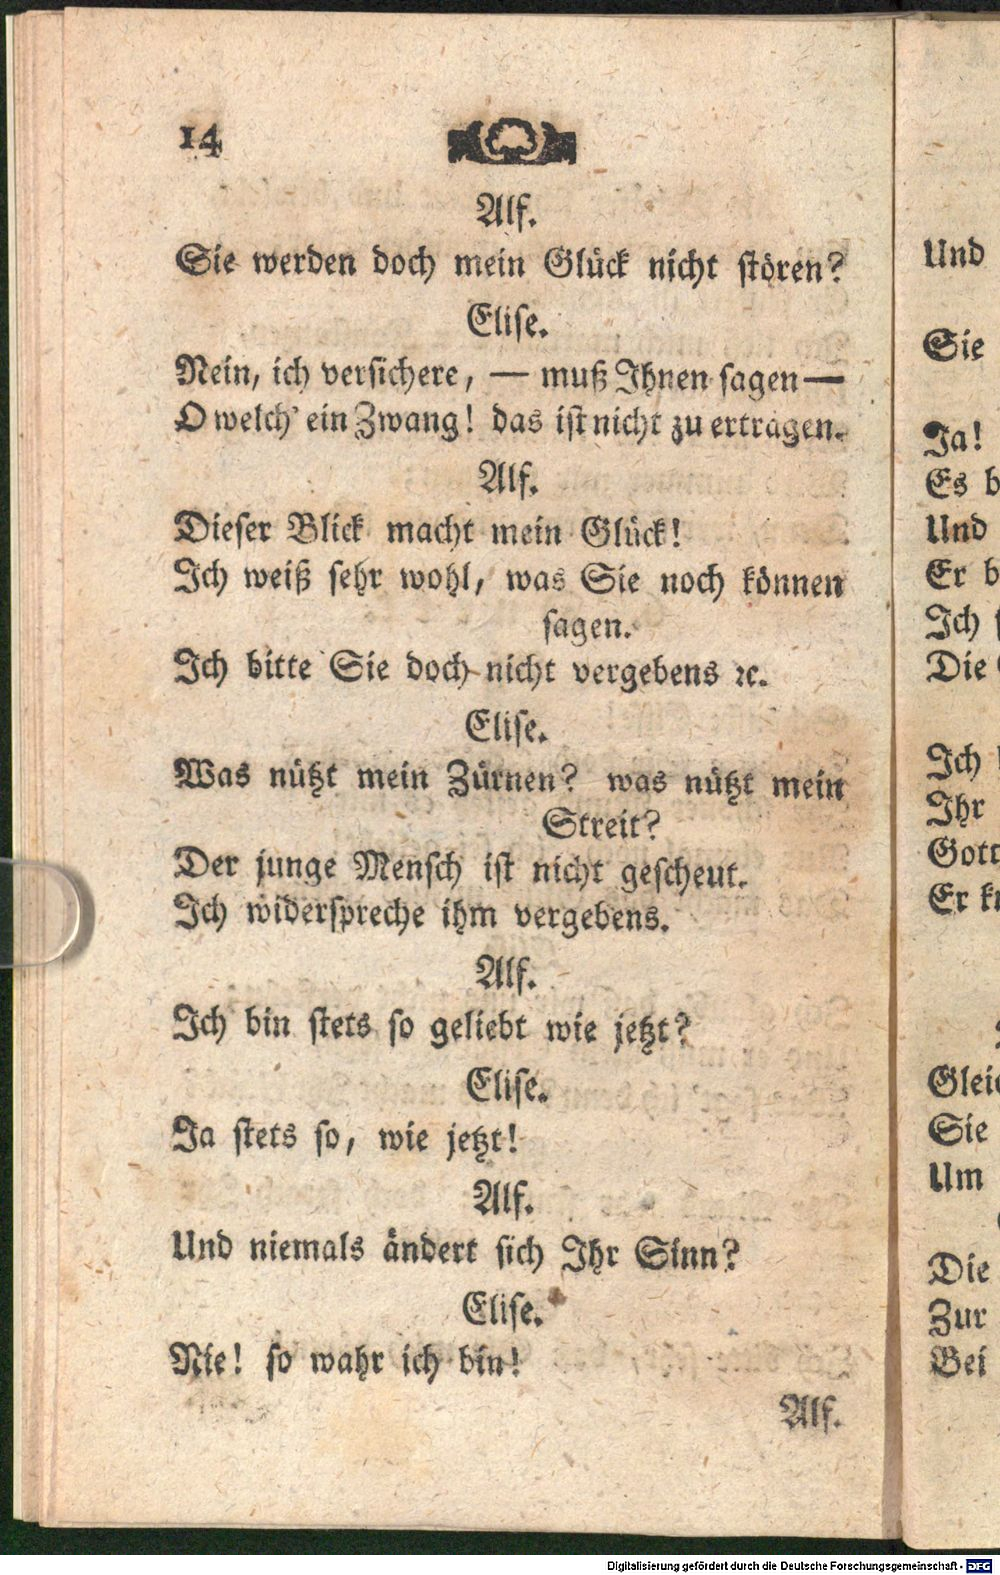 14
Alf.
Sie werden doch mein Glück nicht stören?
Elise.
Nein, ich versichere, — muß Ihnen sagen —
O welch' ein Zwang! das ist nicht zu ertragen.
Alf.
Dieser Blick macht mein Glück!
Ich weiß sehr wohl, was Sie noch können
sagen.
Ich bitte Sie doch nicht vergebens ꝛc.
Elise.
Was nützt mein Zürnen? was nützt mein
Streit?
Der junge Mensch ist nicht gescheut.
Ich widerspreche ihm vergebens.
Alf.
Ich bin stets so geliebt wie jetzt?
Elise.
Ja stets so, wie jetzt!
Alf.
Und niemals ändert sich Ihr Sinn?
Elise.
Nie! so wahr ich bin!
Alf.
Und
Sie
Ja!
Es
Und
Er
Ich
Die
Ich
Ihr
Gott
Er
Sie
Um
Die
Zur
Bei
Digitalisierung gefördert durch die Deutsche Forschungsgemeinschaft - DFG